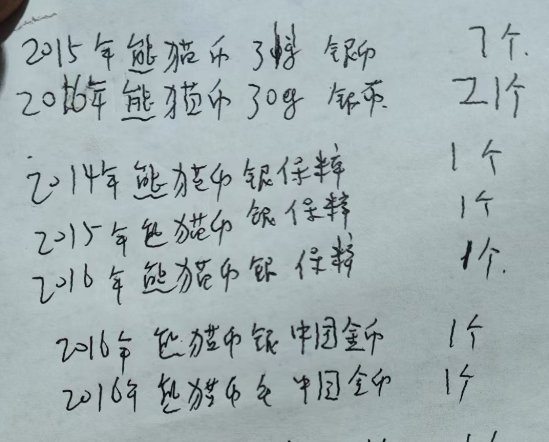 2015年熊猫币 31g 银币 7个.
2016年熊猫币 30g 银币. 21个
2014年熊猫币银保粹 1个
2015年熊猫币银保粹 1个
2016年熊猫币银保粹 1个.
2016年熊猫币银中国金币 1个
2016年熊猫币 中国金币 1个